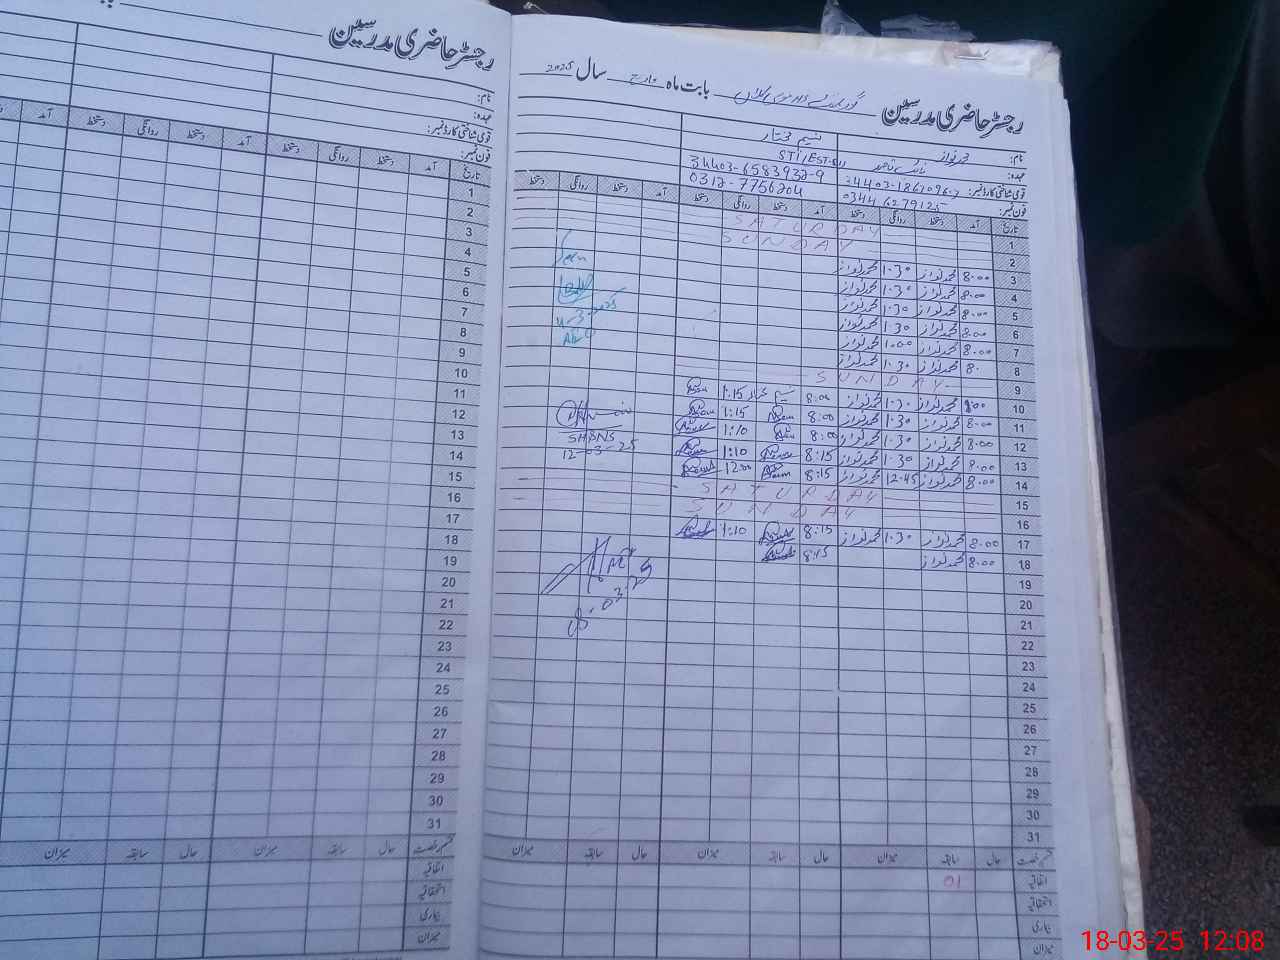 رجسٹر حاضری مدرسین
نام:
عہدہ:
قومی شناختی کارڈ نمبر:
فون نمبر:
تاریخ آمد دستخط روانگی دستخط آمد دستخط روانگی دستخط آمد
1
2
3
4
5
6
7
8
9
10
11
12
13
14
15
16
17
18
19
20
21
22
23
24
25
26
27
28
29
30
31
قسم رخصت حال سابقہ میزان حال سابقہ میزان
اتفاقیہ
استحقاقیہ
بیماری
میزان
رجسٹر حاضری مدرسین بابت ماہ مارچ سال 2025
نام: محمد نواز نسیم مختار
عہدہ: نائب قاصد STI/EST
قومی شناختی کارڈ نمبر: 34403-6583932-9
فون نمبر: 0344 6279125 0312-7756204
تاریخ آمد دستخط روانگی دستخط آمد دستخط روانگی دستخط آمد دستخط روانگی دستخط
1 SATURDAY
2 SUNDAY
3 8.00 محمد نواز 1.30 محمد نواز
4 8.00 محمد نواز 1.30 محمد نواز
5 8.00 محمد نواز 1.30 محمد نواز
6 8.00 محمد نواز 1.30 محمد نواز
7 8.00 محمد نواز 1.00 محمد نواز
8 8. محمد نواز 1.30 محمد نواز
9 SUNDAY
10 8.00 محمد نواز 1.30 محمد نواز 8:00 1:15
11 8.00 محمد نواز 1.30 محمد نواز 8:00 1:15
12 8.00 محمد نواز 1.30 محمد نواز 8:00 1:10
13 8.00 محمد نواز 1.30 محمد نواز 8:15 1:10
14 8.00 محمد نواز 12.45 محمد نواز 8:15 12:00
15 SATURDAY
16 SUNDAY
17 8.00 محمد نواز 1.30 محمد نواز 8:15 1:10
18 8.00 محمد نواز 8:15
19
20
21
22
23
24
25
26
27
28
29
30
31
AEO
12-03-25
قسم رخصت حال سابقہ میزان حال سابقہ میزان حال سابقہ میزان
اتفاقیہ 01
استحقاقیہ
بیماری
میزان
18-03-25 12:08